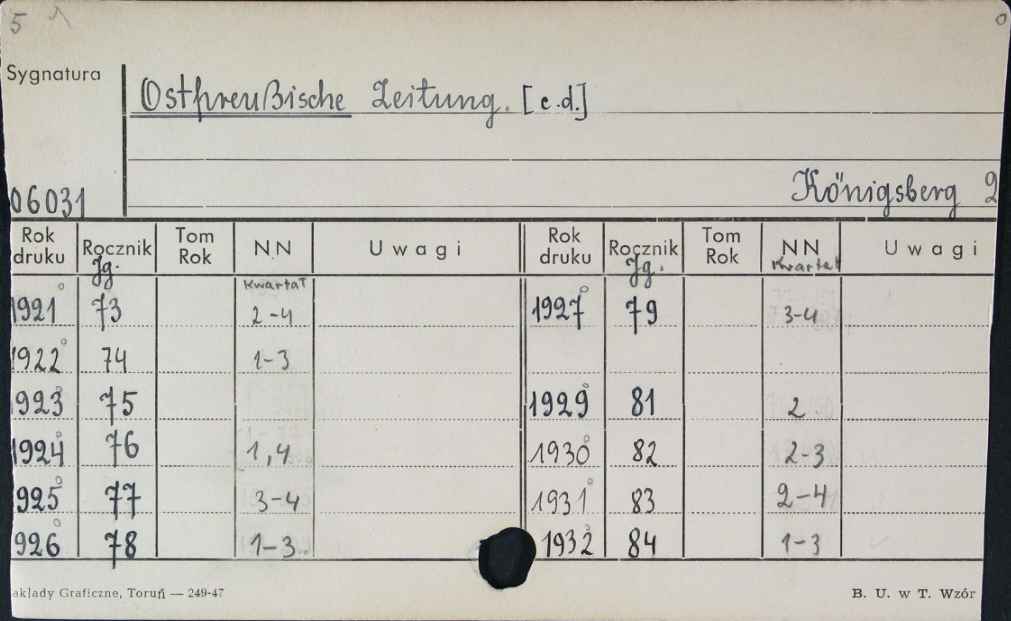 5
Sygnatura
Ostpreußische Zeitung. [c.d.]
06031
Königsberg 2
Rok druku Rocznik Jg. Tom Rok NN kwartał Uwagi Rok druku Rocznik Jg. Tom Rok NN kwartał Uwagi
1921 73 2-4 1927 79 3-4
1922 74 1-3
1923 75 1929 81 2
1924 76 1,4 1930 82 2-3
925 77 3-4 1931 83 2-4
926 78 1-3 1932 84 1-3
akłady Graficzne, Toruń — 249-47 B. U. w T. Wzór